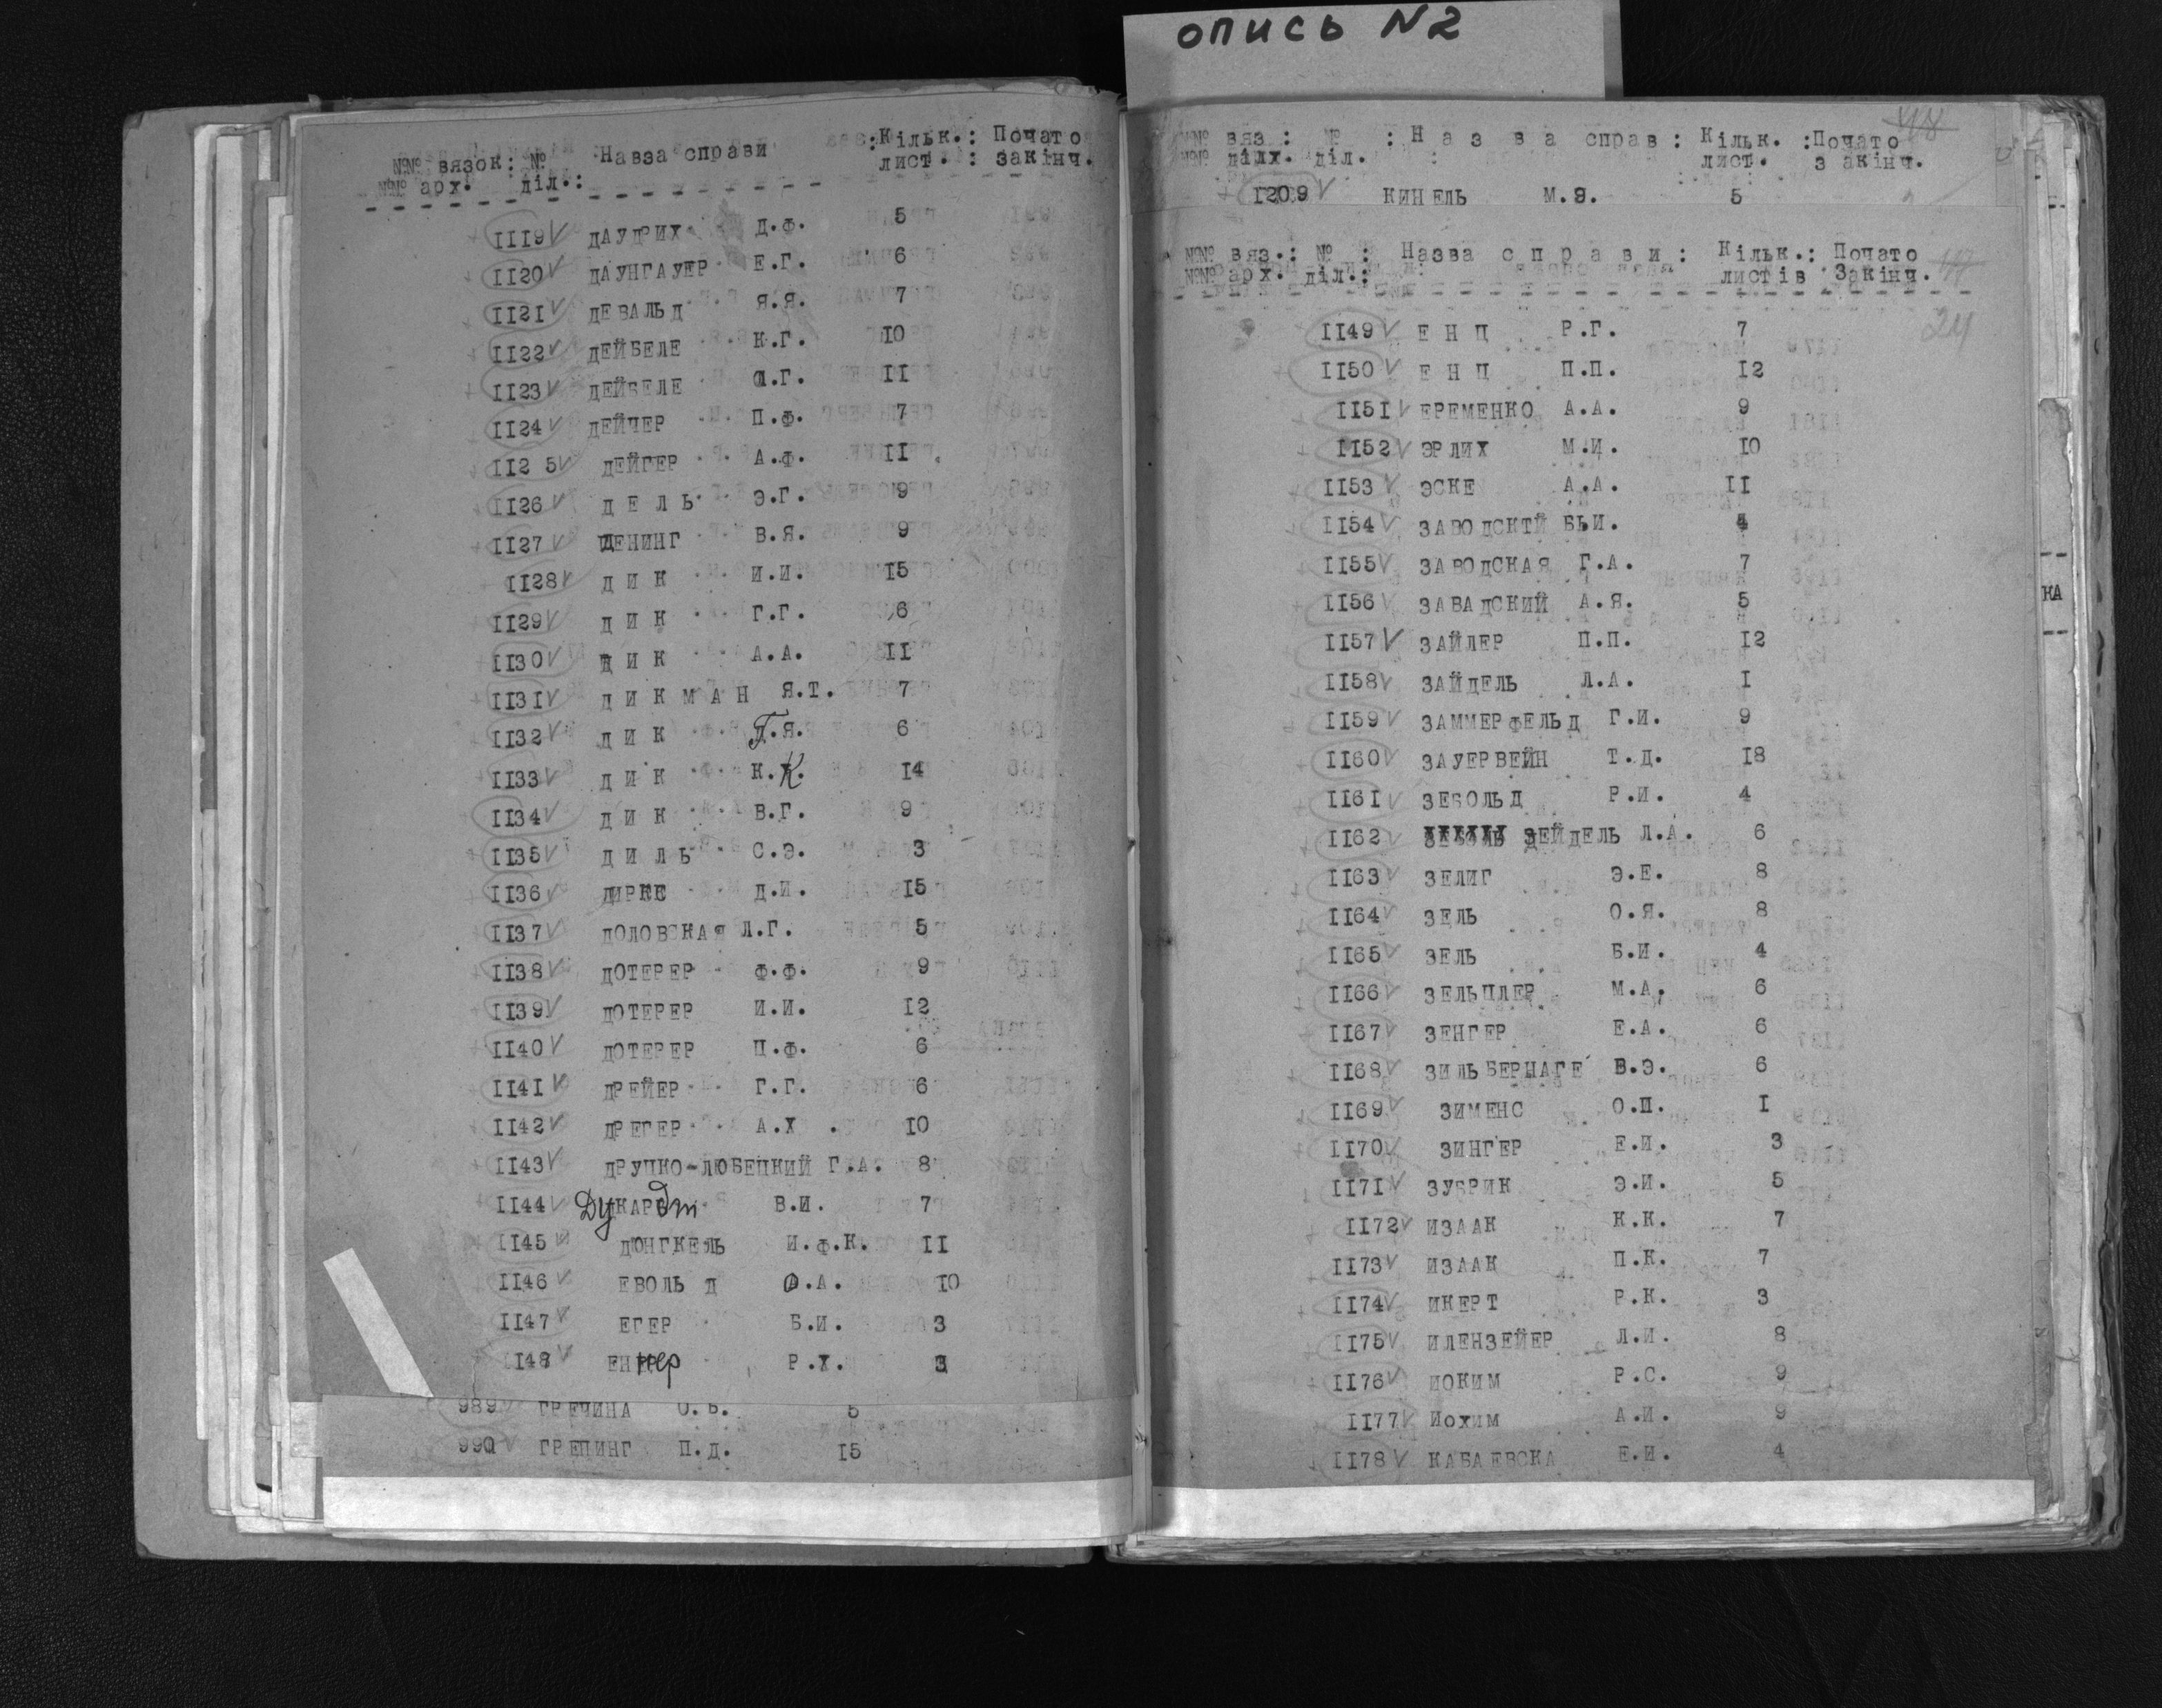 опись N2
№№ вязок: № Навза справи :Кільк.: Почато
№№ арх. діл.: лист. : закінч.
1119 ДАУДРИХ Д.Ф. 5
1120 ДАУНГАУЕР Е.Г. 6
1121 ДЕВАЛЬД Я.Я. 7
1122 ДЕЙБЕЛЕ К.Г. 10
1123 ДЕЙБЕЛЕ Г. 11
1124 ДЕЙЧЕР П.Ф. 7
112 5 ДЕЙГЕР А.Ф. 11
1126 Д Е Л Ь Э.Г. 9
1127 ДЕНИНГ В.Я. 9
1128 Д И К И.И. 15
1129 Д И К Г.Г. 6
1130 Д И К А.А. 11
1131 Д И К М А Н Я.Т. 7
1132 Д И К Г.Я. 6
1133 Д И К К.К. 14
1134 Д И К В.Г. 9
1135 Д И Л Ь С.Э. 3
1136 ДИРКС Д.И. 15
1137 ДОЛОВСКАЯ Л.Г. 5
1138 ДОТЕРЕР Ф.Ф. 9
1139 ДОТЕРЕР И.И. 12
1140 ДОТЕРЕР П.Ф. 6
1141 ДРЕЙЕР Г.Г. 6
1142 ДРЕГЕР А.Х . 10
1143 ДРУЦКО-ЛЮБЕЦКИЙ Г.А. 8
1144 ДуКАРдт В.И. 7
1145 ДЮНГКЕЛЬ И.Ф.К. 11
1146 ЕВОЛЬ Д А. 10
1147 ЕГЕР Б.И. 3
1148 ЕНнер Р.Х. 3
989 ГРЕЧИНА О.В. 5
990 ГРЕПИНГ П.Д. 15
№№ вяз : № : Н а з в а справ : Кільк. :Почато 48
№№ ділх. діл. : лист. з акінч.
1209 КИНЕЛЬ М.Э. 5
№№ вяз.: № : Назва с п р а в и : Кільк.: Почато 47
№№ арх. діл.: листів Закінч.
24
1149 Е Н Ц Р.Г. 7
1150 Е Н Ц П.П. 12
1151 ЕРЕМЕНКО А.А. 9
1152 ЭРЛИХ М.И. 10
1153 ЭСКЕ А.А. 11
1154 ЗАВОДСКТЙ БЬИ. 4
1155 ЗАВОДСКАЯ Г.А. 7
1156 ЗАВАДСКИЙ А.Я. 5
1157 ЗАЙЛЕР П.П. 12
1158 ЗАЙДЕЛЬ Л.А. 1
1159 ЗАММЕРФЕЛЬД Г.И. 9
1160 ЗАУЕРВЕЙН Т.Д. 18
1161 ЗЕБОЛЬД Р.И. 4
1162 ЗЕЙДЕЛЬ Л.А. 6
1163 ЗЕЛИГ Э.Е. 8
1164 ЗЕЛЬ О.Я. 8
1165 ЗЕЛЬ Б.И. 4
1166 ЗЕЛЬЦЛЕР М.А. 6
1167 ЗЕНГЕР Е.А. 6
1168 ЗИЛЬБЕРНАГЕ В.Э. 6
1169 ЗИМЕНС О.П. 1
1170 ЗИНГЕР Е.И. 3
1171 ЗУБРИК Э.И. 5
1172 ИЗААК К.К. 7
1173 ИЗААК П.К. 7
1174 ИКЕРТ Р.К. 3
1175 ИЛЕНЗЕЙЕР Л.И. 8
1176 ИОКИМ Р.С. 9
1177 Иохим А.И. 9
1178 КАБАЕВСКА Е.И. 4
КА